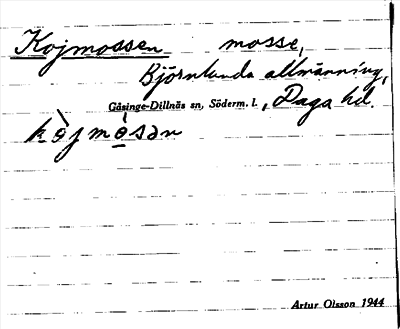 Kojmossen mosse,
Björnlunda allmänning,
Gåsinge-Dillnäs sn, Söderm. l., Daga hd.
kòjmòsən
Artur Olsson 1944